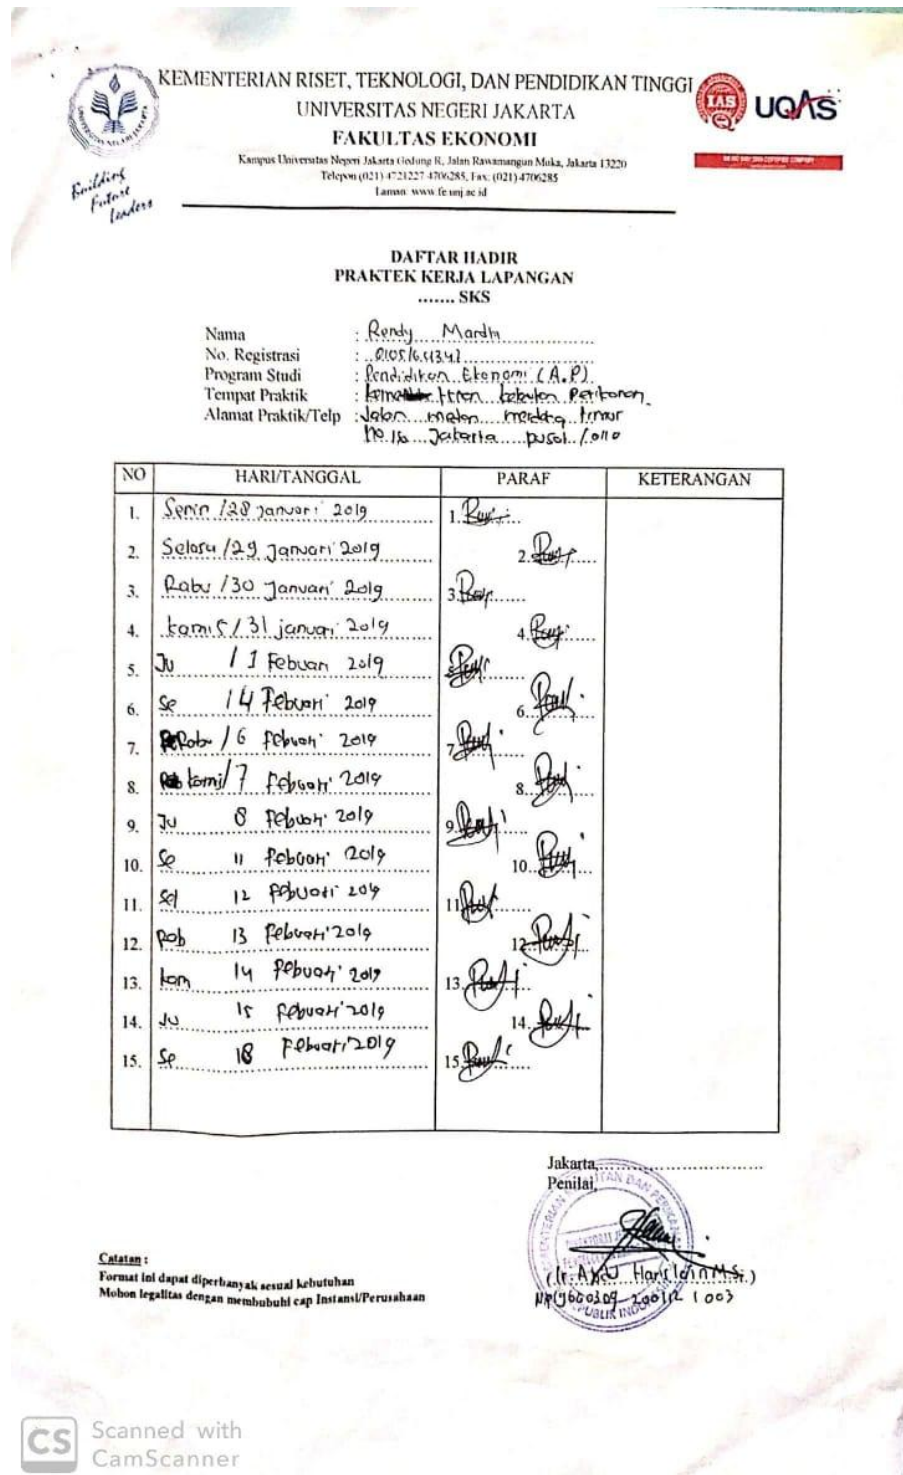 KEMENTERIAN RISET, TEKNOLOGI, DAN PENDIDIKAN TINGGI
UNIVERSITAS NEGERI JAKARTA
FAKULTAS EKONOMI
Kampus Universitas Negeri Jakarta Gedung R, Jalan Rawamangun Muka, Jakarta 13220
Telepon (021) 4721227 4706285, Fax: (021) 4706285
Laman: www.fe.unj.ac.id
IAS
UQAS
Building
Future
Leaders
DAFTAR HADIR
PRAKTEK KERJA LAPANGAN
....... SKS
Nama : Rendy
No. Registrasi :
Program Studi : Pendidikan Ekonomi (A.P)
Tempat Praktik :
Alamat Praktik/Telp : Jalan medan merdeka timur
No. 16 Jakarta pusat
NO HARI/TANGGAL PARAF KETERANGAN
1. Senin /28 Januari 2019 1.
2. Selasa /29 Januari 2019 2.
3. Rabu /30 Januari 2019 3.
4. kamis / 31 januari 2019 4.
5. Ju / 1 Febuari 2019 5.
6. Se / 4 Febuari 2019 6.
7. Rabu / 6 febuari 2019 7.
8. kami/ 7 febuari 2019 8.
9. Ju 8 febuari 2019 9.
10. Se 11 febuari 2019 10.
11. Sel 12 febuari 2019 11.
12. Rab 13 febuari 2019 12.
13. kam 14 febuari 2019 13.
14. Ju 15 febuari 2019 14.
15. Se 18 febuari 2019 15.
Jakarta,
Penilai,
Catatan :
Format ini dapat diperbanyak sesuai kebutuhan
Mohon legalitas dengan membubuhi cap Instansi/Perusahaan
CS Scanned with
CamScanner